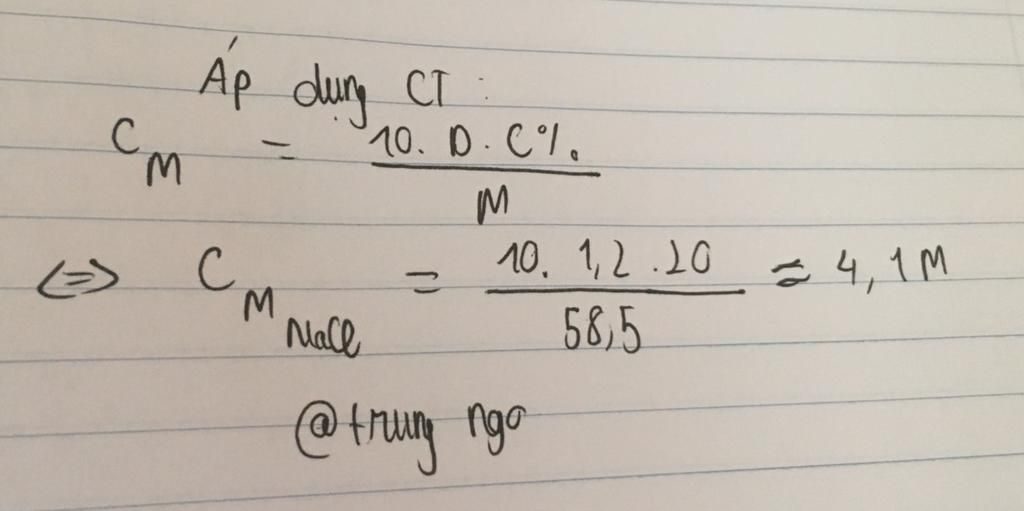 Áp dụng CT :
C_M = 10. D. C% / M
<=> C_M NaCl = 10. 1,2 . 20 / 58,5 ≈ 4,1M
@trung ngo